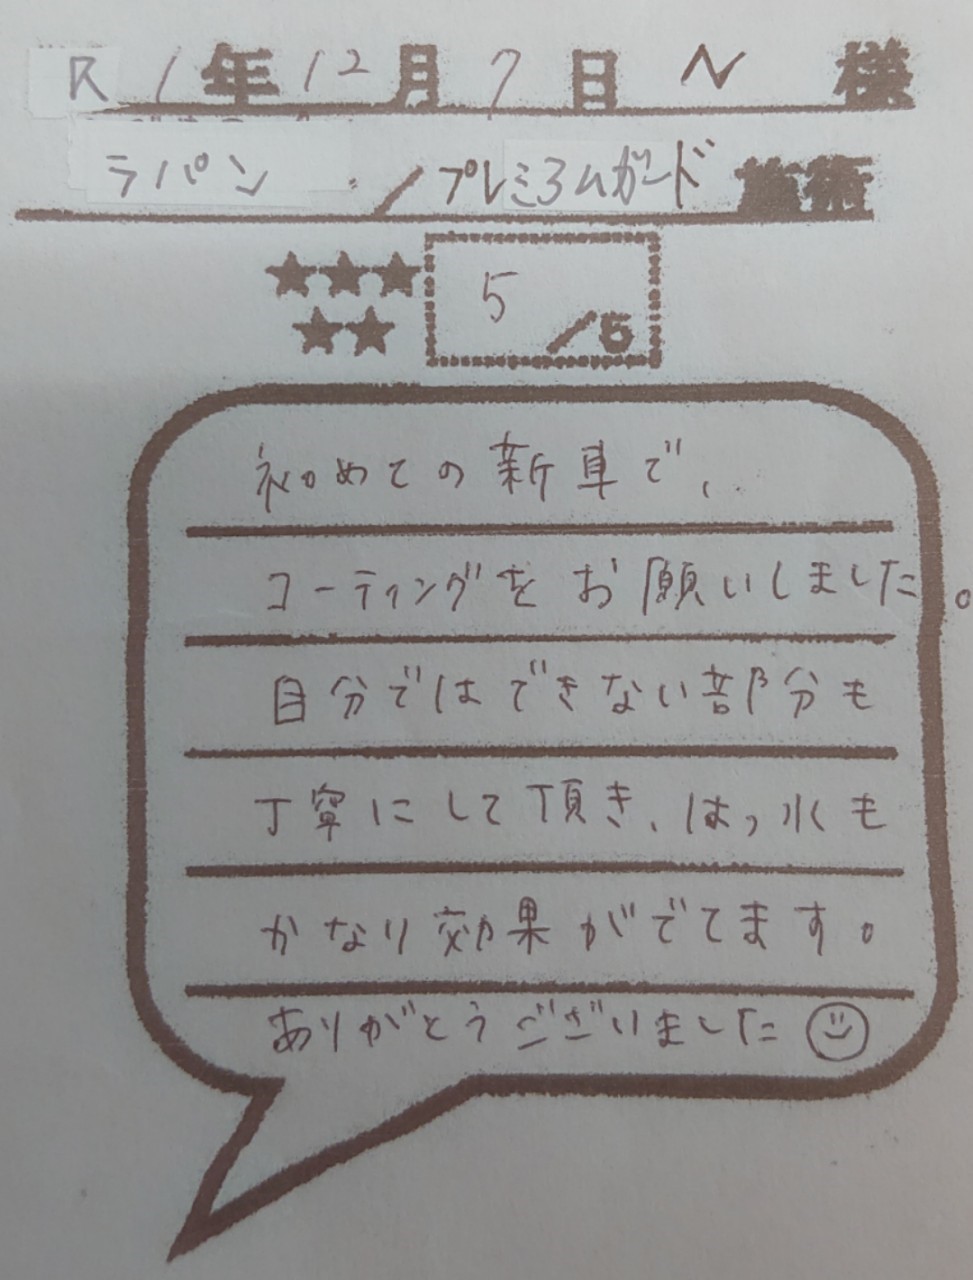 R1年12月7日 N 様
ラパン / プレミアムガード 施術
★★★ 5/5
★★
初めての新車で、
コーティングをお願いしました。
自分ではできない部分も
丁寧にして頂き、はっ水も
かなり効果がでてます。
ありがとうございました